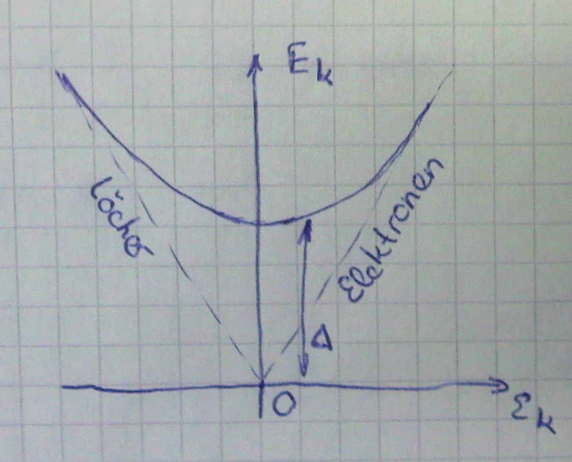 E_k
Löcher
Elektronen
Δ
O
ε_k